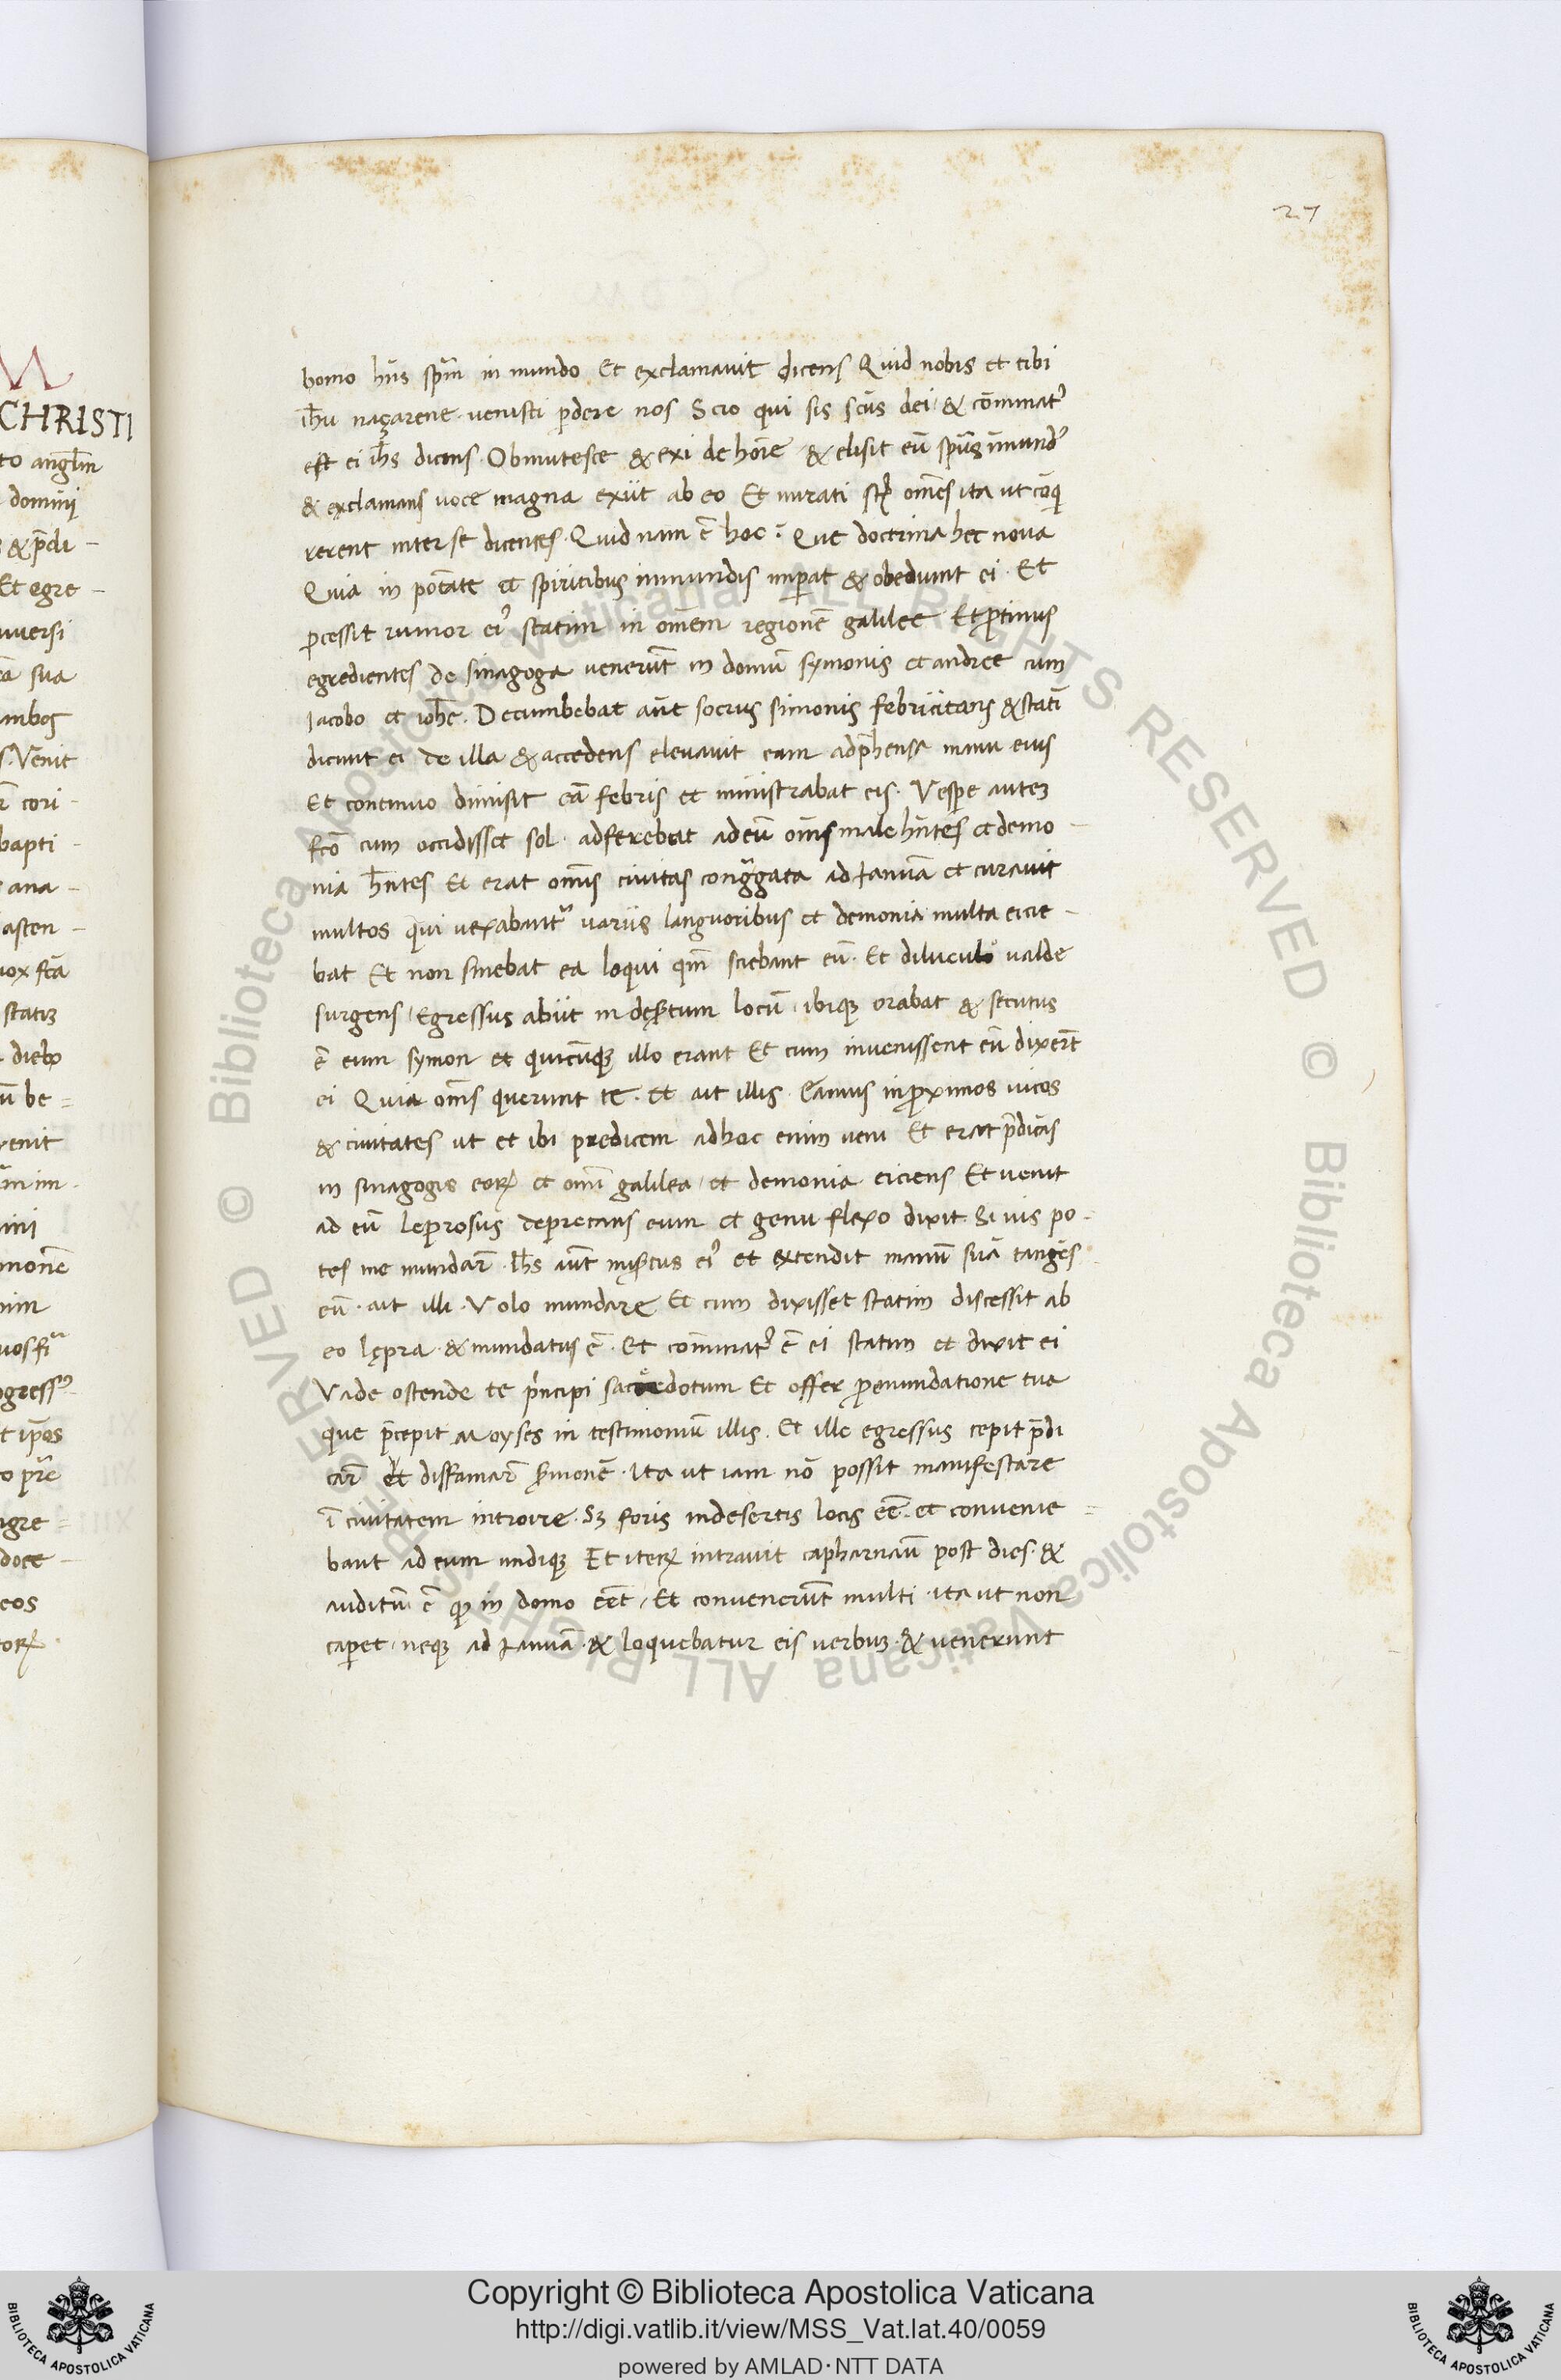 27
CHRISTI
to angl̄m
domini
& p̄di-
Et egre-
sua
S. Venit
cori-
bapti-
ana-
ascen-
vox fc̄a
statiz
ū be=
venit
monē
ngre=
doce-
eos
homo hn̄s spm̄ in mundo Et exclamavit dicens Quid nobis et tibi
ih̄u naçarene. venisti pdere nos Scio qui sis sc̄us dei & cōminatꝰ
est ei ih̄s dicens. Obmutesce & exi de hoīe & elisit eū spūs īmundꝰ
& exclamans voce magna exiit ab eo Et mirati st̄ om̄es ita ut cōq̄
rerent inter se dicentes. Quid nam ē hoc? Que doctrina hec nova
Quia in potāte et spiritibus inmundis imperat & obediunt ei. Et
pcessit rumor eiꝰ statim in om̄em regionē galilee Et ptinus
egredientes de sinagoga venerūt in domū symonis et andree cum
Iacobo et ioh̄e. Decumbebat aūt socrus simonis febricitans & statī
dicunt ei de illa & accedens elevavit eam adp̄hensa manu eius
Et continuo dimisit eā febris et ministrabat eis. Vespe autez
fc̄o cum occidisset sol. adferebat ad eū om̄s male hn̄tes et demo-
nia hn̄tes Et erat om̄is civitas congregata ad Ianuā et curavit
multos qui vexabant᷑ variis languoribus et demonia multa eicie-
bat Et non sinebat ea loqui qm̄ sciebant eū. Et diluculo valde
surgens egressus abiit in desertum locū. ibiqȝ orabat & secutus
ē eum symon et qui cūqȝ illo erant Et cum invenissent eū dixert̄
ei Quia om̄s querunt te. Et ait illis. Eamus in pximos vicos
& civitates ut et ibi predicem ad hoc enim veni Et erat p̄dicās
in sinagogis eoꝝ et om̄i galilea et demonia eiciens Et venit
ad eū leprosus deprecans eum et genu flexo dixit. Si vis po-
tes me mundar̄. Ih̄s aūt misertus eiꝰ et extendit manū suā tangēs
eū. ait illi. Volo mundare Et cum dixisset statim discessit ab
eo lępra. & mundatus ē. Et cōminatꝰ ē ei statim et dixit ei
Vade ostende te p̄ncipi sacerdotum Et offer p emundatione tua
que p̄cepit Moyses in testimoniū illis. Et ille egressus cepit p̄di
car̄ et diffamar̄ sermonē. ita ut iam nō possit manifestare
ī civitatem introire. Sȝ foris in desertis locis eē. et convenie=
bant ad eum undiqȝ Et iteꝝ intravit capharnaū post dies. &
auditū ē qȝ in domo eēt. Et convenerūt multi. ita ut non
caperet. neqȝ ad Ianuā. & loquebatur eis verbuz. & venerunt
Copyright © Biblioteca Apostolica Vaticana
http://digi.vatlib.it/view/MSS_Vat.lat.40/0059
powered by AMLAD·NTT DATA
BIBLIOTECA APOSTOLICA VATICANA
BIBLIOTECA APOSTOLICA VATICANA
© Biblioteca Apostolica Vaticana ALL RIGHTS RESERVED © Biblioteca Apostolica Vaticana ALL RIGHTS RESERVED